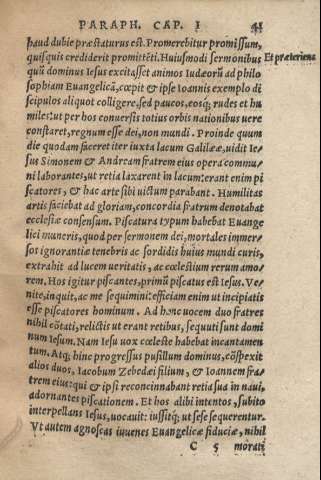 PARAPH. CAP. I 41
haud dubie præstaturus est. Promerebitur promissum,
quisquis crediderit promittēti. Huiusmodi sermonibus
Et præteriens
quū dominus Iesus excitasset animos Iudæorū ad philo
sophiam Euangelicā, cœpit & ipse Ioannis exemplo di
scipulos aliquot colligere, sed paucos, eosq; rudes et hu
miles: ut per hos conuersis totius orbis nationibus uere
constaret, regnum esse dei, non mundi. Proinde quum
die quodam faceret iter iuxta lacum Galilææ, uidit Ie
sus Simonem & Andream fratrem eius opera commu,
ni laborantes, ut retia laxarent in lacum: erant enim pi
scatores, & hac arte sibi uictum parabant. Humilitas
artis faciebat ad gloriam, concordia fratrum denotabat
ecclesiæ consensum. Piscatura typum habebat Euange
lici muneris, quod per sermonem dei, mortales immer,
sos ignorantiæ tenebris ac sordidis huius mundi curis,
extrahit ad lucem ueritatis, ac cœlestium rerum amo,
rem. Hos igitur piscantes, primū piscatus est Iesus. Ve,
nite, inquit, ac me sequimini: efficiam enim ut incipiatis
esse piscatores hominum. Ad hāc uocem duo fratres
nihil cōtati, relictis ut erant retibus, sequuti sunt domi
num Iesum. Nam Iesu uox cœleste habebat incantamen
tum. Atq; hinc progressus pusillum dominus, cōspexit
alios duos, Iacobum Zebedæi filium, & Ioannem fra,
trem eius: qui & ipsi reconcinnabant retia sua in naui,
adornantes piscationem. Et hos alibi intentos, subito
interpellans Iesus, uocauit: iussitq; ut sese sequerentur.
Vt autem agnoscas iuuenes Euangelicæ fiduciæ, nihil
C 5 morati